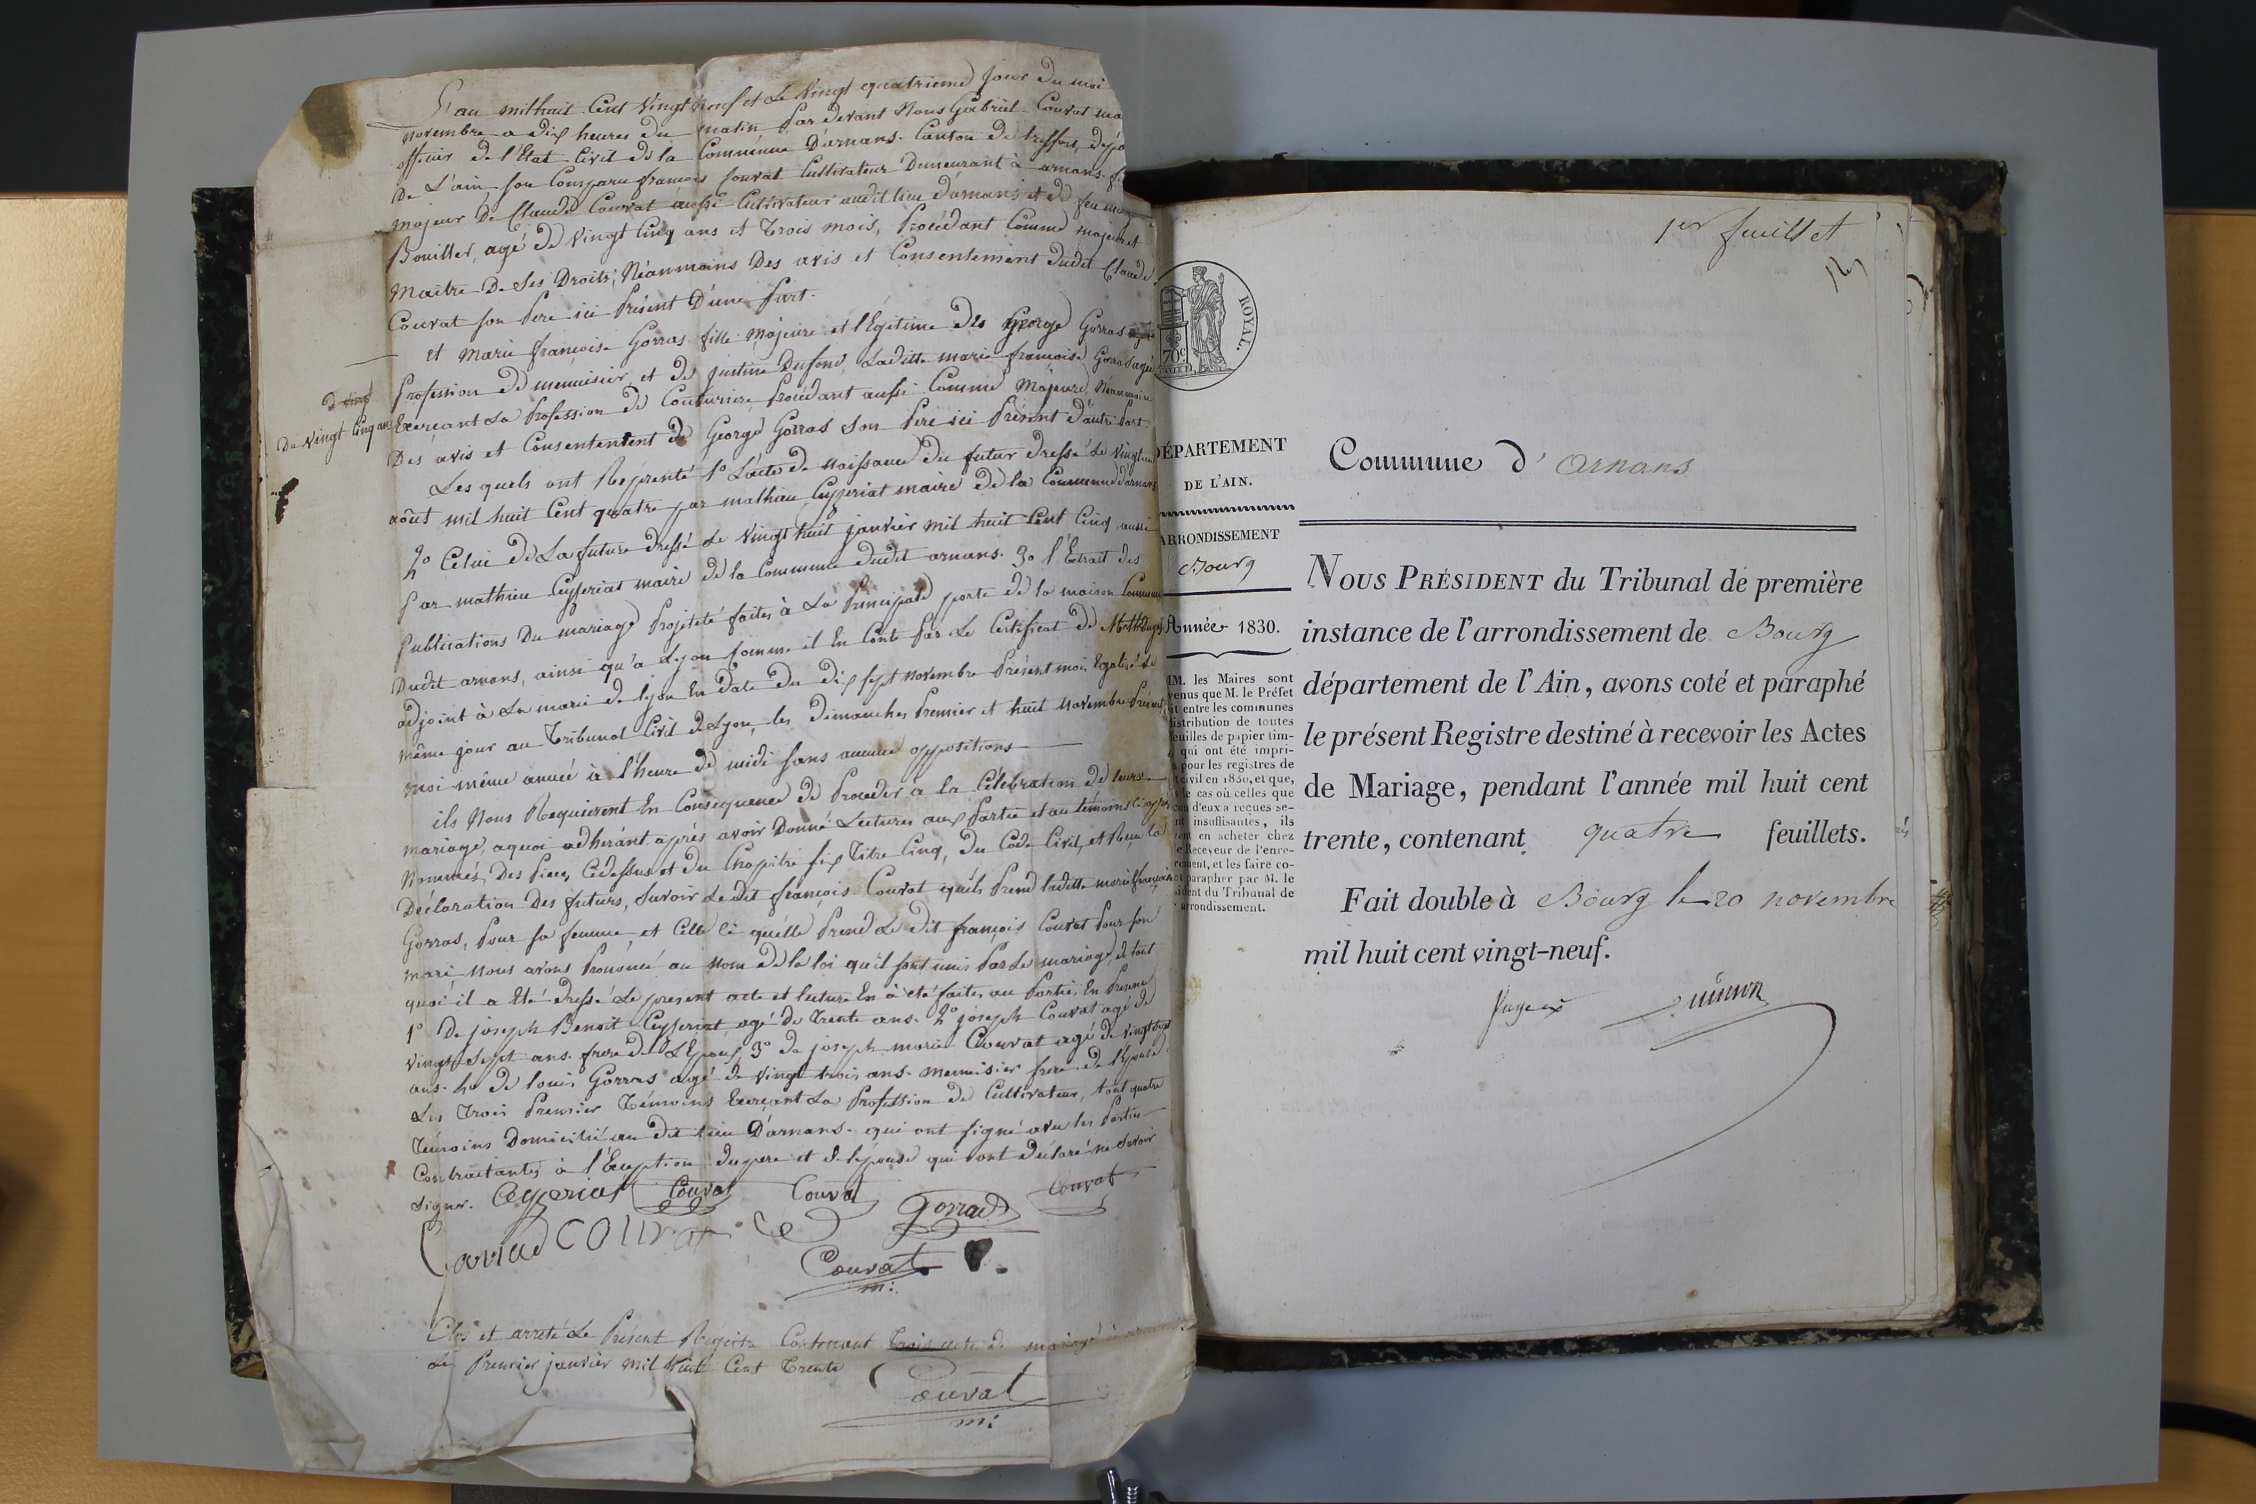 L'an mil huit Cent Vingt neuf et Le Vingt quatrieme jour du moi
novembre a dix heures du matin Par devant Nous Gabriel Couvat
officier de l'Etat Civil de la Commune D'arnans. Canton de treffort,
De L'ain son Comparu francois Couvat Cultivateur Demeurant à arnans
majeur De Claude Couvat aussi Cultivateur audit lieu d'arnans et de feu
Bouiller, agé de Vingt Cinq ans et Trois mois, Procédant Comme majeur et
Maitre De Ses Droits, Néanmoins Des avis et Consentement dudit Claude
Couvat son Pere ici Présent D'une Part.
et Marie françoise Gorras fille Majeure et l'Egitime de George Gorras
Profession de menuisier, et de justine Dufour, Laditte marie francoise Gorras agé
de cinq
De Vingt Cinq ans
Exercant La Profession de Couturiere, Procédant aussi Comme Majeure, Néanmoins
Des avis et Consentement de George Gorras Son Pere ici Présent D'autre Part
Les quels ont Représenté 1º L'acte de Naissance du futur dressé Le Vingt
août mil huit Cent quatre par mathieu Ceyseriat maire de la Commune d'arnans
2º Celui de La future dressé Le Vingt huit janvier mil huit Cent Cinq aussi
Par mathieu Ceyseriat maire de la Commune dudit arnans. 3º l'Extrait des
Publications Du mariage Projeteté faites à La Principale porte de la maison Commune
Dudit arnans, ainsi qu'a Lyon comme il En Conte Par Le Certificat de
adjoint à La marie de Lyon En Date du Dix sept novembre Présent moi, légalisé Le
même jour au Tribunal Civil de Lyon, les Dimanches Premier et huit Novembre Présent
moi même année à l'heure de midi sans aucune oppositions
ils Nous Requierent En Consequence de Proceder à la Célébration de leurs
mariage, aquoi adherant après avoir Donné Lectures aux Partie et au témoins
Nommés, Des Pieces Cidessus et du Chapitre six Titre Cinq, Du Code Civil, et Reçu la
Déclaration Des futurs, Savoir Le dit françois Couvat qu'ils Prend laditte marie françoise
Gorras, Pour sa femme, et Celle ci qu'elle Prend Le Dit françois Couvat Pour son
mari, Nous avons Prononcé au Nom de la loi qu'il sont unis Par Le mariage, de tout
quoi il a Eté dressé Le present acte et lecture En à été faites au Parties En Présence
1º De joseph Benoit Ceyseriat agé de Trente ans. 2º joseph Couvat agé de
Vingt Sept ans. frere de L'Epoux, 3º de joseph marie Couvat agé de Vingt Sept
ans. 4º de louis Gorras agé de Vingt trois ans. menuisier frere de l'Epouse
Les Trois Premier Témoins Exercant La Profession de Cultivateur, tout quatre
Témoins Domicilié au dit Lieu D'arnans. qui ont signé avec les Parties
Contractantes, à l'Exception du pere et de l'epouse qui ont Déclaré ne Savoir
Signer. Ceyseriat Couvat Couvat Gorras Couvat
Couvat
Couvat
m:
Clos et arreté Le Présent Registre Contenant Trois actes de mariage
Le Premier janvier Mil Huit Cent Trente
Couvat
m:
1er feuillet
ROYAL.
70c
DÉPARTEMENT
DE L'AIN.
ARRONDISSEMENT
Bourg
Année 1830.
MM. les Maires sont
venus que M. le Préfet
entre les communes
distribution de toutes
feuilles de papier tim-
qui ont été impri-
pour les registres de
civil en 1830, et que,
le cas où celles que
d'eux a reçues se-
insuffisantes, ils
en acheter chez
Receveur de l'enre-
et les faire co-
parapher par M. le
du Tribunal de
arrondissement.
Commune d' arnans
NOUS PRÉSIDENT du Tribunal de première
instance de l'arrondissement de Bourg
département de l'Ain, avons coté et paraphé
le présent Registre destiné à recevoir les Actes
de Mariage, pendant l'année mil huit cent
trente, contenant quatre feuillets.
Fait double à Bourg le 20 novembre
mil huit cent vingt-neuf.